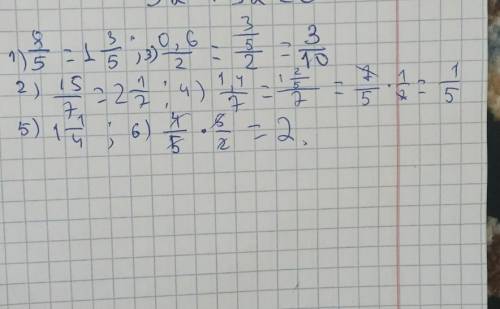 1) 8/5 = 1 3/5 ; 3) 0,6/2 = 3/5/2 = 3/10
2) 15/7 = 2 1/7 ; 4) 1,4/7 = 1 2/5/7 = 7/5 · 1/7 = 1/5
5) 1 1/4 ; 6) 4/5 · 5/2 = 2.